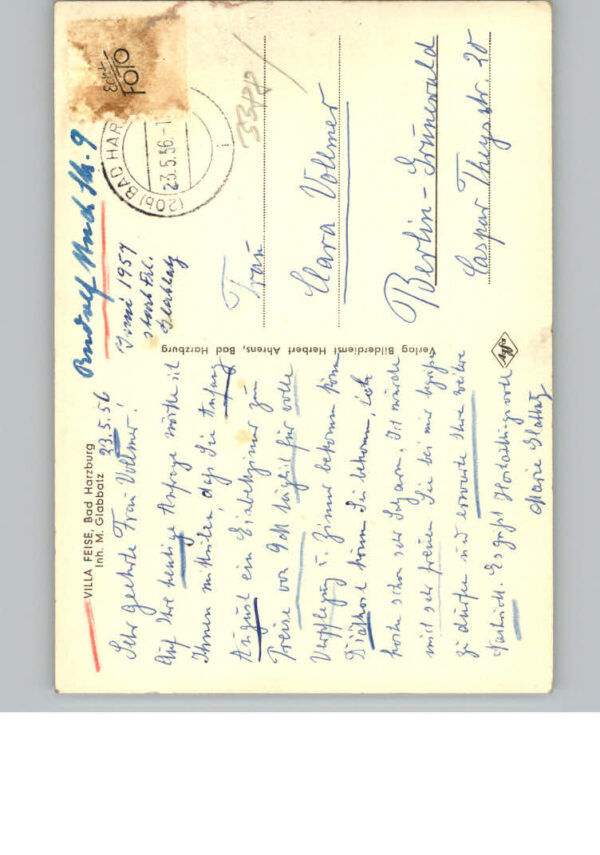 VILLA FEISE, Bad Harzburg
Inh. M. Glabbatz
23.5.56
Sehr geehrte Frau Vollmer!
Auf Ihre heutige Anfrage möchte ich
Ihnen mitteilen, daß Sie Anfang
August ein Einbettzimmer zum
Preise von 9 täglich für volle
Verpflegung u. Zimmer bekommen können
Diätkost können Sie bekommen, ich
koche schon sehr Ich würde
mich sehr freuen Sie bei mir begrüßen
zu dürfen und erwarte Ihre weitere
Nachricht. Es grüßt Hochachtungsvoll
Marie Glabbatz
Verlag Bilderdienst Herbert Ahrens, Bad Harzburg
Agfa
Rudolf Str. 9
Juni 1957
starb Frl.
Glabbatz
(20b) BAD HAR
23.5.56.-1
i
Echt
FOTO
3388
Frau
Clara Vollmer
Berlin-Grunewald
Caspar Theyss str. 20